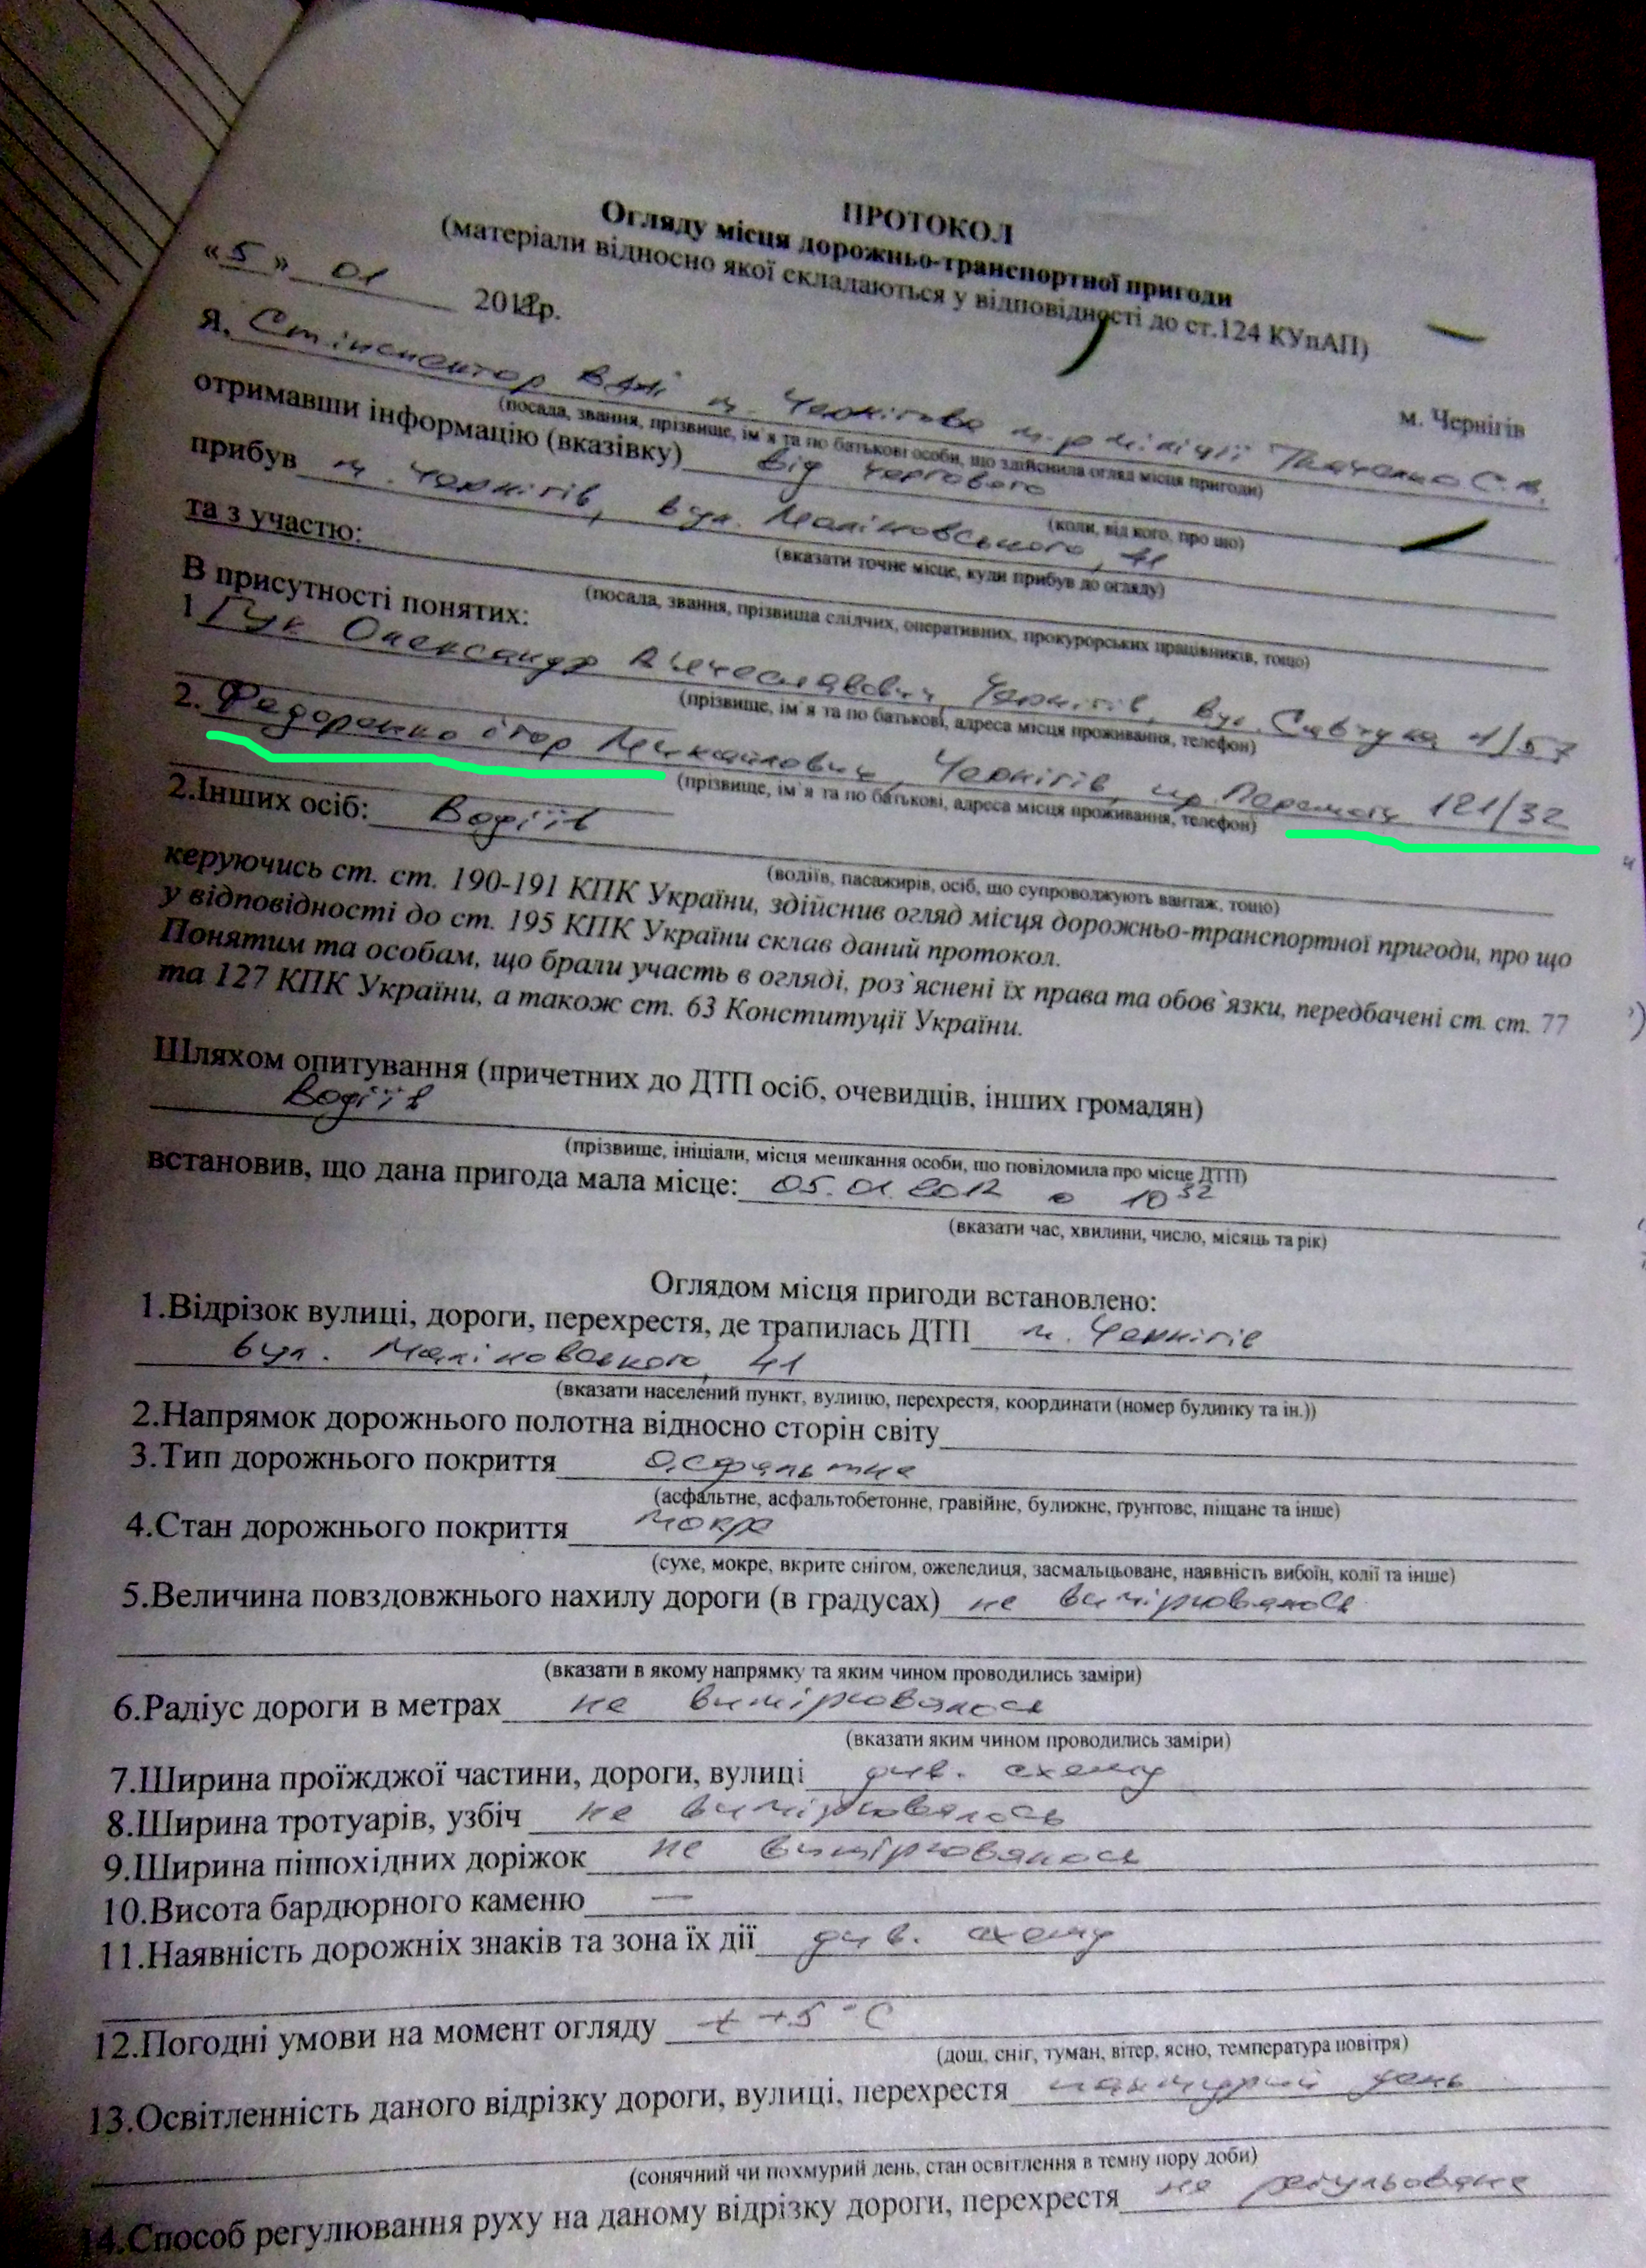 ПРОТОКОЛ
Огляду місця дорожньо-транспортної пригоди
(матеріали відносно якої складаються у відповідності до ст.124 КУпАП)
«5» 01 2012р.
м. Чернігів
Я, Ст. інспектор ВДАІ м. Чернігова м-р міліції Ткаченко С.В.
(посада, звання, прізвище, ім`я та по батькові особи, що здійснила огляд місця пригоди)
отримавши інформацію (вказівку) від чергового
(коли, від кого, про що)
прибув м. Чернігів, вул. Маліновського, 41
(вказати точне місце, куди прибув до огляду)
та з участю:
(посада, звання, прізвища слідчих, оперативних, прокурорських працівників, тощо)
В присутності понятих:
1 Гук Олександр Вячеславович, Чернігів, вул. Савчука 4/57
(прізвище, ім`я та по батькові, адреса місця проживання, телефон)
2. Федоренко Ігор Михайлович, Чернігів, пр. Перемоги 121/32
(прізвище, ім`я та по батькові, адреса місця проживання, телефон)
2.Інших осіб: Водіїв
(водіїв, пасажирів, осіб, що супроводжують вантаж, тощо)
керуючись ст. ст. 190-191 КПК України, здійснив огляд місця дорожньо-транспортної пригоди, про що
у відповідності до ст. 195 КПК України склав даний протокол.
Понятим та особам, що брали участь в огляді, роз`яснені їх права та обов`язки, передбачені ст. ст. 77
та 127 КПК України, а також ст. 63 Конституції України.
Шляхом опитування (причетних до ДТП осіб, очевидців, інших громадян)
Водіїв
(прізвище, ініціали, місця мешкання особи, що повідомила про місце ДТП)
встановив, що дана пригода мала місце: 05.01.2012 о 10 32
(вказати час, хвилини, число, місяць та рік)
Оглядом місця пригоди встановлено:
1.Відрізок вулиці, дороги, перехрестя, де трапилась ДТП м. Чернігів
вул. Маліновського, 41
(вказати населений пункт, вулицю, перехрестя, координати (номер будинку та ін.))
2.Напрямок дорожнього полотна відносно сторін світу
3.Тип дорожнього покриття асфальтне
(асфальтне, асфальтобетонне, гравійне, булижне, грунтове, піщане та інше)
4.Стан дорожнього покриття мокре
(сухе, мокре, вкрите снігом, ожеледиця, засмальцьоване, наявність вибоїн, колії та інше)
5.Величина повздовжнього нахилу дороги (в градусах) не вимірювалось
(вказати в якому напрямку та яким чином проводились заміри)
6.Радіус дороги в метрах не вимірювалося
(вказати яким чином проводились заміри)
7.Ширина проїжджої частини, дороги, вулиці див. схему
8.Ширина тротуарів, узбіч не вимірювалось
9.Ширина пішохідних доріжок не вимірювалося
10.Висота бардюрного каменю —
11.Наявність дорожніх знаків та зона їх дії див. схему
12.Погодні умови на момент огляду t +5 °C
(дощ, сніг, туман, вітер, ясно, температура повітря)
13.Освітленність даного відрізку дороги, вулиці, перехрестя похмурий день
(сонячний чи похмурий день, стан освітлення в темну пору доби)
14.Способ регулювання руху на даному відрізку дороги, перехрестя не регульоване